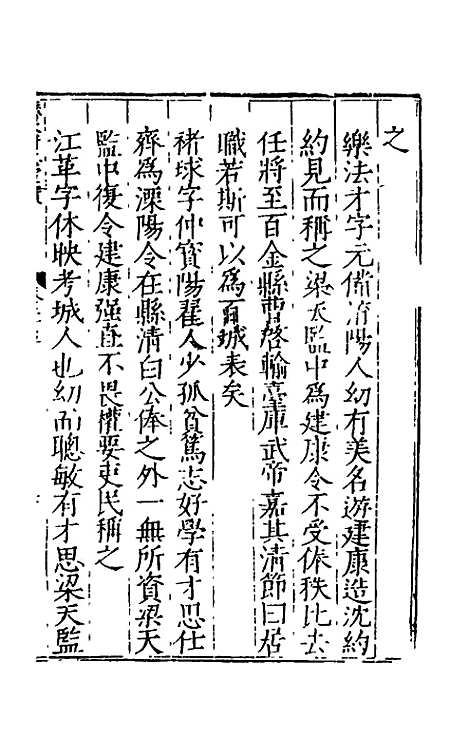 之
樂法才字元備淯陽人幼有美名遊建康造沈約
約見而稱之梁天監中爲建康令不受俸秩比去
任將至百金縣曹啓輸臺庫武帝嘉其清節曰居
職若斯可以爲百城表矣
褚球字仲寳陽翟人少孤貧篤志好學有才思仕
齊爲溧陽令在縣清白公俸之外一無所資梁天
監中復令建康强直不畏權要吏民稱之
江革字休映考城人也幼而聰敏有才思梁天監